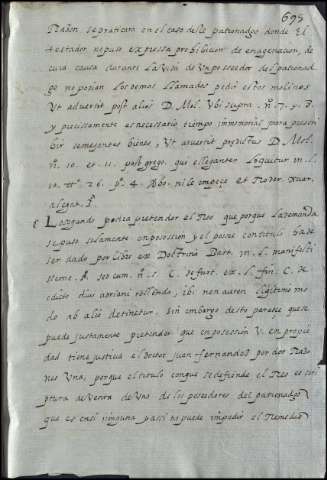 695
Razon se praticara en el caso deste patronadgo donde El
testador no puso expressa prohibicion de enagenacion, de
cuia causa durante La vida de Un posseedor del patronad
go no podian Los demas llamados pedir estos molinos
Ut advertit post alios D. Mol. Ubi supra. nº. 7. y. 8.
y precissamente es necessario tiempo immemorial para prescri
bir semejantes bienes, Ut advertit predictus D. Mol.
nº. 10. et. 11. post greg. qui elleganter Loquitur in. l.
10. tt. 26. p. 4. ni le empeçe et Roder. xuar.
alegat. 9.
Lo segundo podria pretender el Reo que porque La demanda
se puso solamente en possession y el posee con titulo ha de
ser dado por Libre ex Doctrina Bart. in. l. manifesti
C. de furt. ex. l. fin. C. de
edicto divi adriani tollendo, ibi non autem legitimo mo
do ab alio detinetur. sin embargo desto parece que se
puede justamente pretender que en possession V. en propie
dad tiene justicia el doctor juan fernandes por dos Ra
nes Una, porque el titulo con que se defiende el Reo es escri
ptura de Venta de Uno de los posedores del patronadgo
que es en si ninguna y assi no puede impedir el Remedio